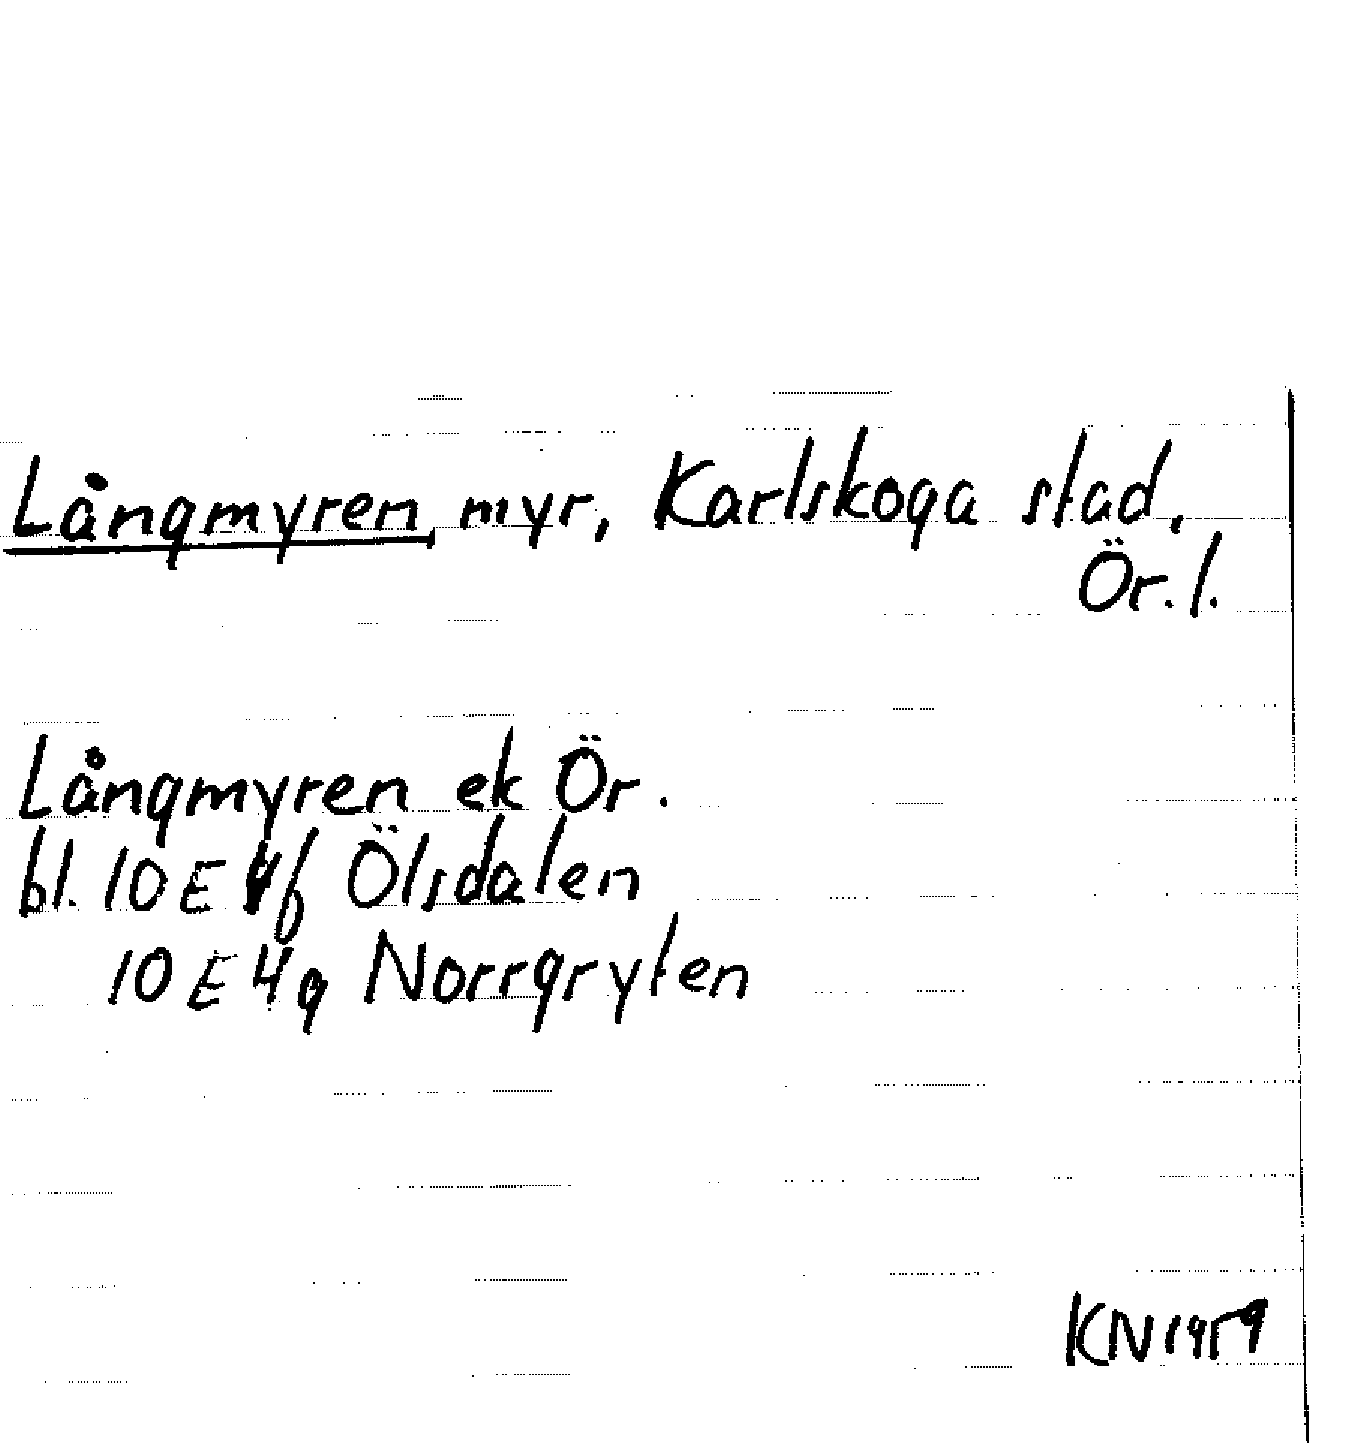 Långmyren, myr, Karlskoga stad,
Ör. l.
Långmyren ek Ör.
bl. 10 E 4f Ölsdalen
10 E 4g Norrgryten
KN 1959